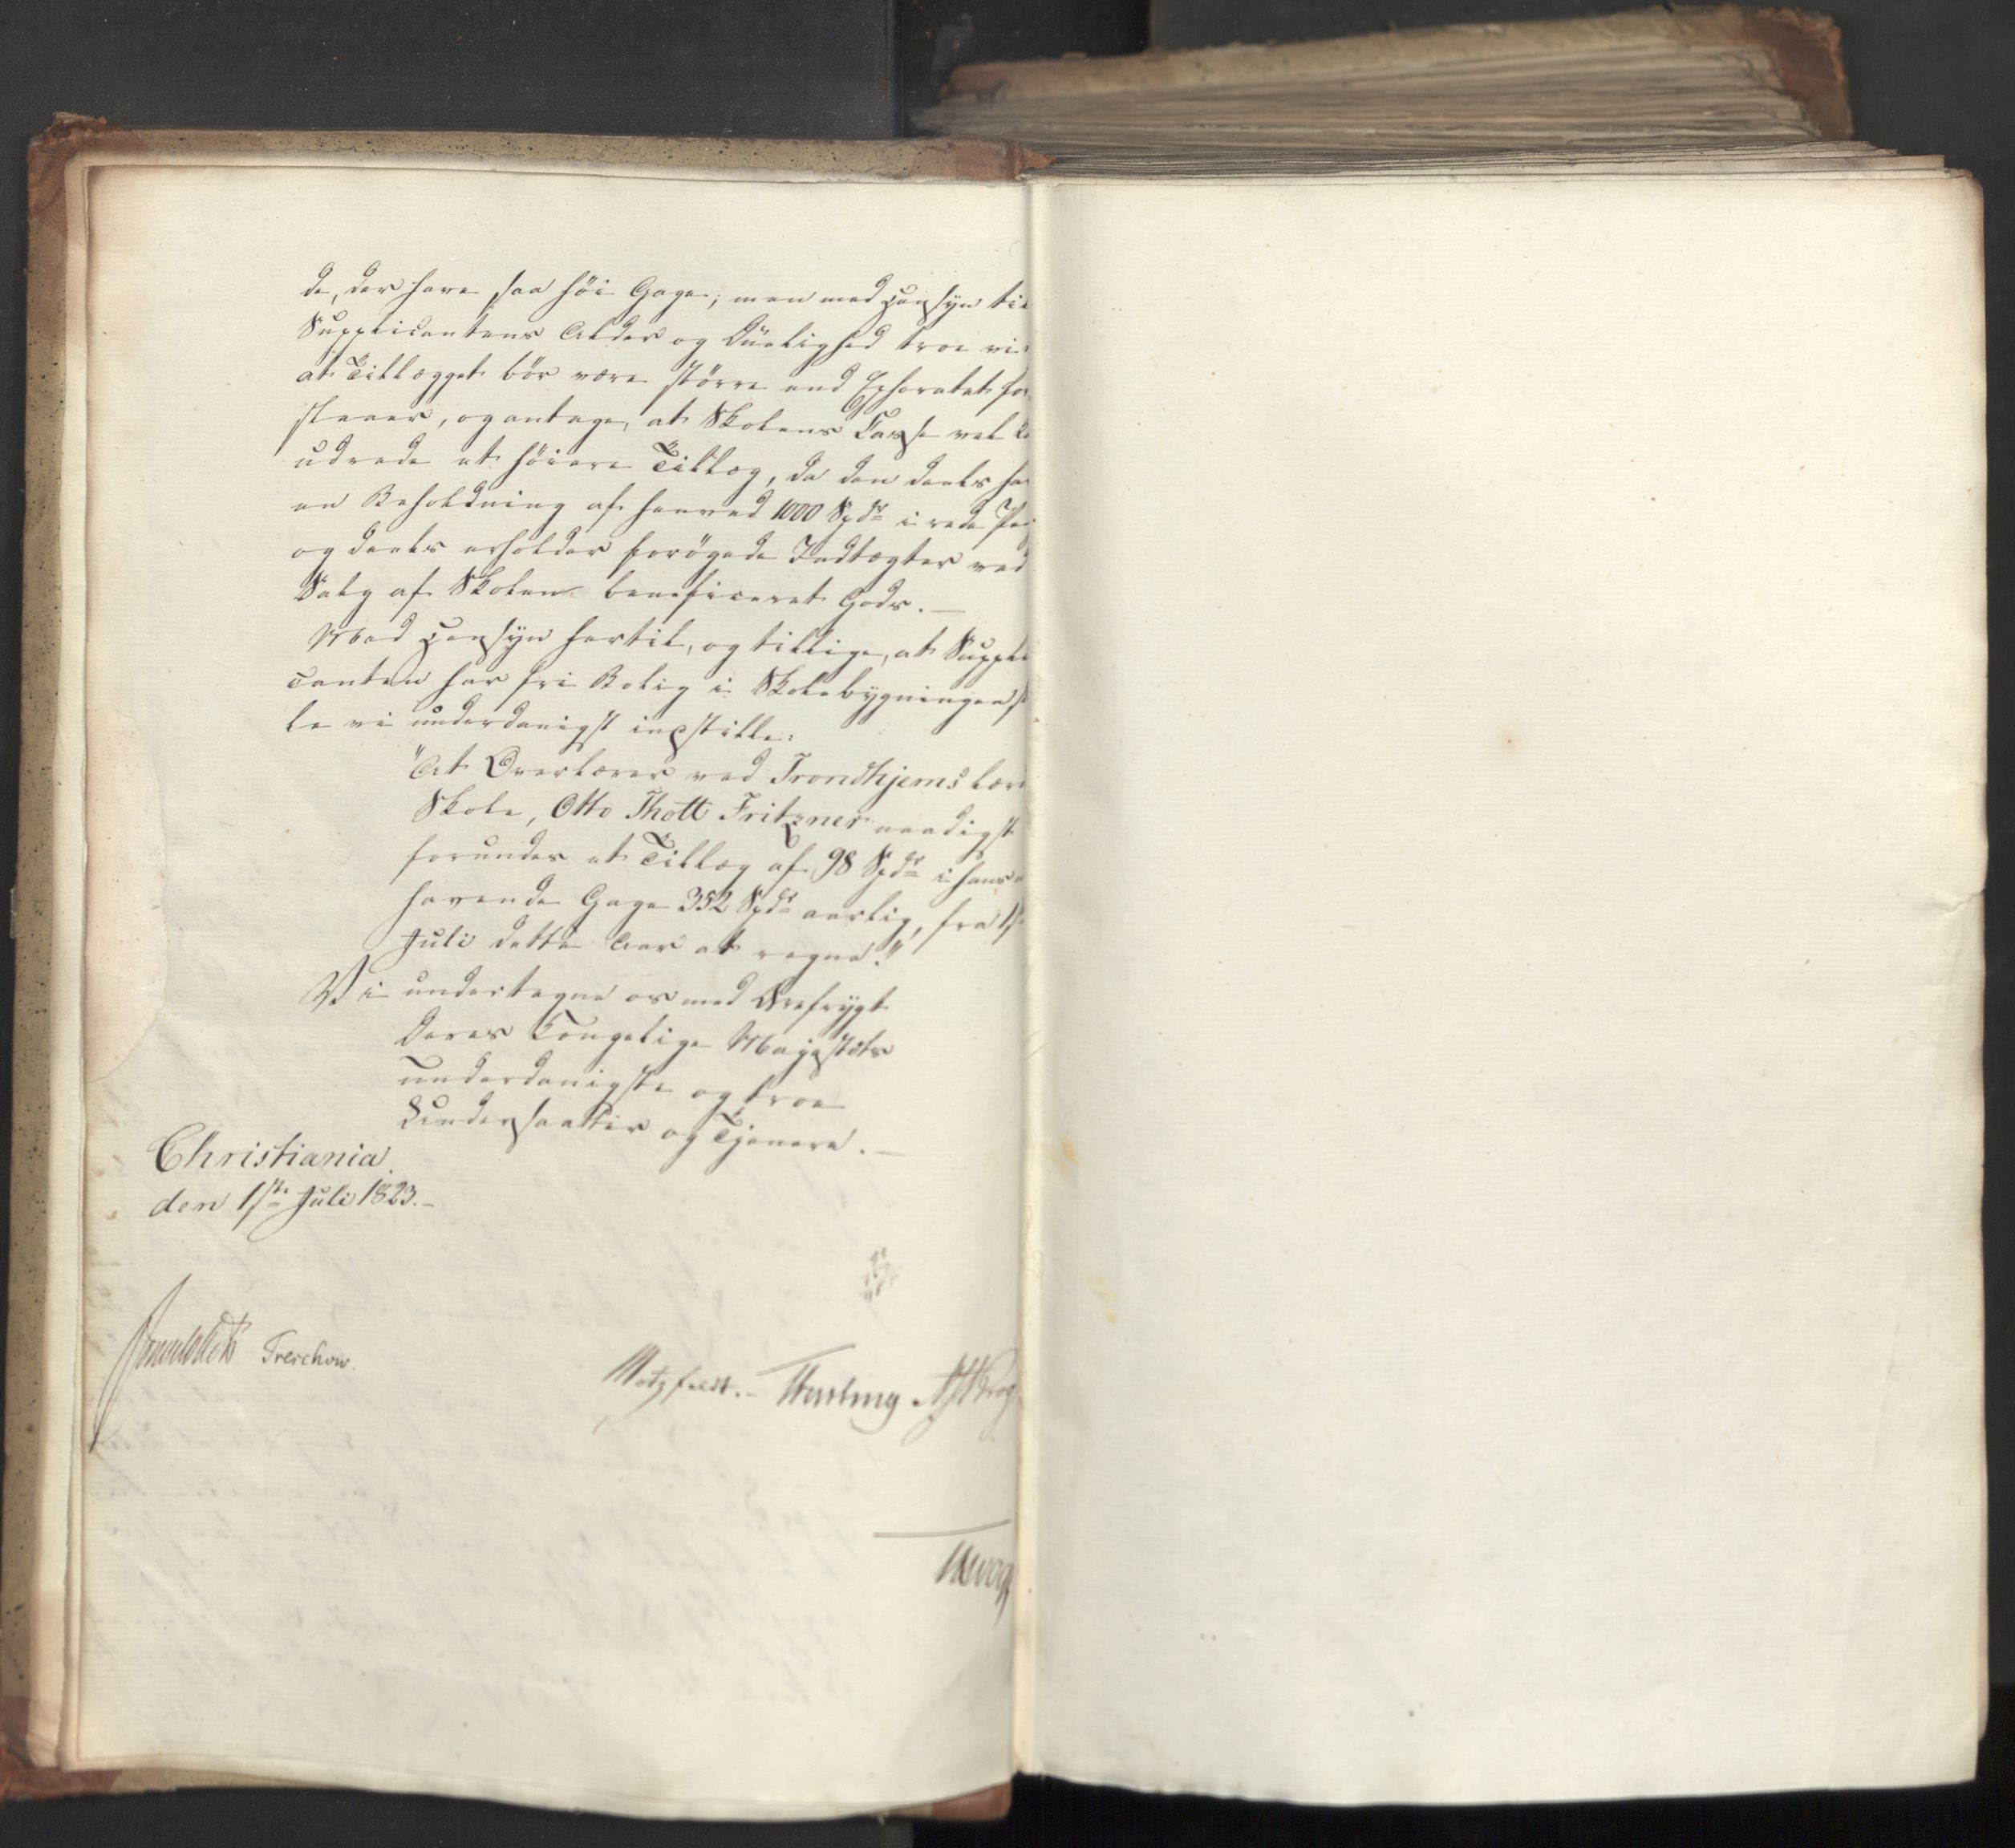 de, der have saa høi Gage; men med Hensyn til
Supplicantens Alder og Duelighed troe vi
at Tillægget bør være større end Ephoratet for
slaaer, og antage, at Skolens Casse vel ka
udrede et høiere Tillæg, da den deels har
en Beholdning af henved 1000 Spdr i rede Pen
og deels erholder forøgede Indtægter ved
Salg af Skolen beneficeret Gods. —
Med Hensyn hertil, og tillige, at Suppli
canten har fri Bolig i Skolebygningen s
le vi underdanigst indstille:
"At Overlærer ved Trondhjems lærd
Skole, Otto Thott Fritzner naadigst
forundes et Tillæg af 98 Spdr i hans
havende Gage 352 Spdr aarlig, fra 1ste
Juli dette Aar at regne."
Vi undertegne os med Ærefrygt
Deres Kongelige Majestæts
underdanigste og troe
Undersaatter og Tjenere. —
Christiania
den 1ste Juli 1823. -
Treschow.
Motzfeldt. -